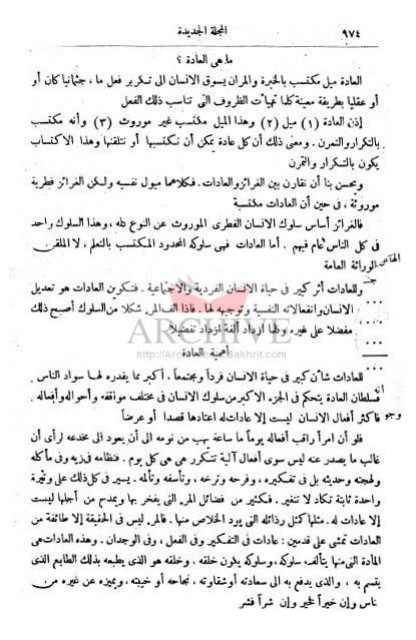 ٩٧٤ المجلة الجديدة
ما هى العادة ؟
العادة ميل مكتسب بالخبرة والمران يسوق الانسان الى تكرير فعل ما ، جثمانيا كان أو
أو عقليا بطريقة معينة كلما تهيأت الظروف التى تناسب ذلك الفعل
إذن العادة (١) ميل (٢) وهذا الميل مكتسب غير موروث (٣) وأنه مكتسب
بالتكرار والتمرن . ومعنى ذلك أن كل عادة يمكن أن نكتسبها أو نتلقنها وهذا الاكتساب
يكون بالتكرار والتمرن
ويحسن بنا أن نقارن بين الغرائز والعادات . فكلاهما ميول نفسيه ولكن الغرائز فطرية
موروثة ، فى حين أن العادات مكتسبة
فالغرائز أساس سلوك الانسان الفطرى الموروث عن النوع كله ، وهذا السلوك واحد
فى كل الناس عام فيهم . أما العادات فهى سلوكه المحدود المكتسب بالتعلم ، لا الملقن
الوراثة العامة
وللعادات أثر كبير فى حياة الانسان الفردية والاجتماعية . فتكوين العادات هو تعديل
الانسان وانفعالاته النفسية وتوجيه لها . فاذا ألف المرء شكلا من السلوك أصبح ذلك
مفضلا على غيره وكلما ازداد ألفة ازداد تفضيلا
ARCHIVE
أهمية العادة
للعادات شأن كبير فى حياة الانسان فرداً ومجتمعاً ، أكبر مما يقدره لها سواد الناس
فسلطان العادة يتحكم فى الجزء الاكبر من سلوك الانسان فى مختلف مواقفه وأحواله وأفعاله .
فأكثر أفعال الانسان ليست إلا عادات له اعتادها قصدا أو عرضاً
فلو أن امرأ راقب أفعاله يوماً ما ساعة يهب من نومه الى أن يعود الى مخدعه لرأى أن
غالب ما يصدر عنه ليس سوى أفعال آلية تتكرر هى هى كل يوم . فنظامه فى زيه وفى مأكله
ولهجته وحديثه بل فى تفكيره ، وفرحه وترحه ، وتأسفه وتألمه . يسير فى كل ذلك على وتيرة
واحدة ثابتة تكاد لا تتغير . فكثير من فضائل المرء التى يفخر بها ويمدح من أجلها ليست
إلا عادات له . مثلها كمثل رذائله التى يود الخلاص منها . فالمرء ليس فى الحقيقة إلا طائفة من
العادات تمشى على قدمين : عادات فى التفكير وفى الفعل ، وفى الوجدان . وهذه العادات هى
المادة التى منها يتألف سلوكه ، وسلوكه يكون خلقه ، وخلقه هو الذى يطبعه بذلك الطابع الذى
يتسم به ، والذى يدفع به الى سعادته أو شقاوته ، نجاحه أو خيبته ، ويميزه عن غيره من
ناس وإن خيراً فخير وإن شراً فشر